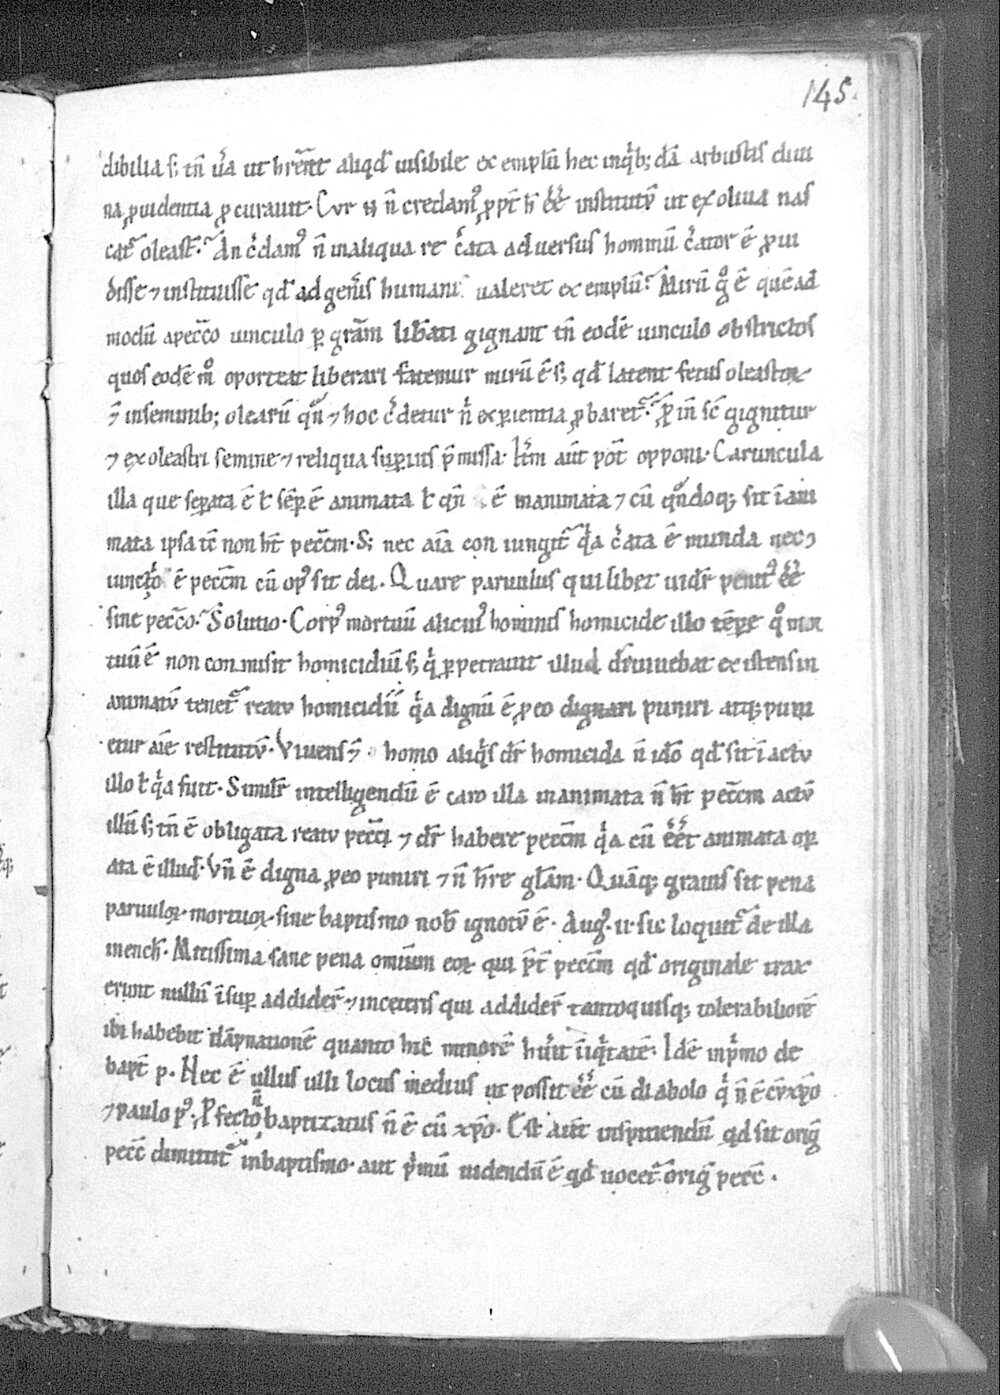 145.
dibilia s; tñ ůa ut hr̃ent aliqd̃ uisibile exemplũ hec inqͥb; dã arbustis diui
na ꝓuidentia ꝓcurauit. Cur n̄ credamꝰ ꝓpt̃ h̃ ee͂ institutũ ut ex oliua nas
cat᷑ oleast᷑. An c̉damꝰ ñ in aliqua re c̉ata aduersus hominũ c̉ator ẽ ꝓui
disse ⁊ instituisse qd̃ ad gen̉is humani ualeret exemplũ. Mirũ gͦ ẽ quẽad
modũ a pecc̃o uinculo ꝑ grãm lib̃ati gignant tñ eodẽ uinculo obstrictos
quos eodẽ mͦ oporteat liberari fatemur mirũ ẽ s; qd̃ latent fetus oleastꝝ
⁊̃ in seminib; olearũ qñ ⁊ hoc c̉detur nͥ exꝑientia ꝓbaret᷑. ꝓin sic̃ gignitur
⁊ ex oleastri semine ⁊ reliqua suꝑius p̃missa. It̃m aũt pot̃ opponi. Caruncula
illa que seꝑata ẽ ł sẽꝑ ẽ animata ł qñ ẽ inanimata ⁊ cũ qñdoq; sit ĩani
mata ipsa tc̃ non ht̃ pecc̃m. S; nec aĩa coniungit᷑ qͥa c̉ata ẽ munda nec
iunctͦ ẽ pecc̃m cũ opꝰ sit dei. Quare paruulus quilibet uidr̃ penitꝰ ee͂
sine pecc̃o. Solutio. Corpꝰ mortuũ alicuiꝰ hominis homicide illo tẽꝑe qͦ mor
tuũ ẽ non conmisit homicidiũ s; qͥ ꝑpetrauit illud dũ uiuebat existens in
animatũ tenet᷑ reatu homicidii qͥa dignũ ẽ ꝓ eo dignari puniri atq; puni
etur aĩe restitutũ. Viuens ⁊̃ homo aliqͥs dr̃ homicida ñ idõ qd̃ sit ĩ actu
illo ł qͥa fuit. Similr̃ intelligendũ ẽ caro illa inanimata ñ ht̃ pecc̃m actũ
illũ s; tñ ẽ obligata reatu pecc̃i ⁊ dr̃ habere pecc̃m qͥa cũ eet̃ animata oꝑ
ata ẽ illud. Vñ ẽ digna ꝓ eo puniri ⁊ ñ hr̃e gl̃am. Quãq; grauis sit pena
paruuloꝝ mortuoꝝ sine baptismo nob̃ ignotũ ẽ. Augꝰ. ů sic loquit᷑ de illa
in ench̃. Mitissima sane pena omnium eoꝝ qui p̃t pecc̃m qd̃ originale trax
erunt nullũ ĩsuꝑ addider̃ ⁊ in ceteris qui addider̃ tanto quisq; tolerabiliorẽ
ibi habebit dãpnationẽ quanto hic minorẽ hũit ĩiqͥtatẽ. Idẽ in pͥmo de
bapt̃ p. Nec ẽ ullus ulli locus medius ut possit ee͂ cũ diabolo qͥ ñ ẽ cũ xp̃o
⁊ paulo pꝰ. ꝓfecto ñ baptizatus ñ ẽ cũ xp̃o. Est aũt inspiciendũ qd̃ sit orig̃
pecc̃ dimittit᷑ in baptismo. aut pͥmũ uidendũ ẽ qd̃ uocet᷑ orig̃ pecc̃.